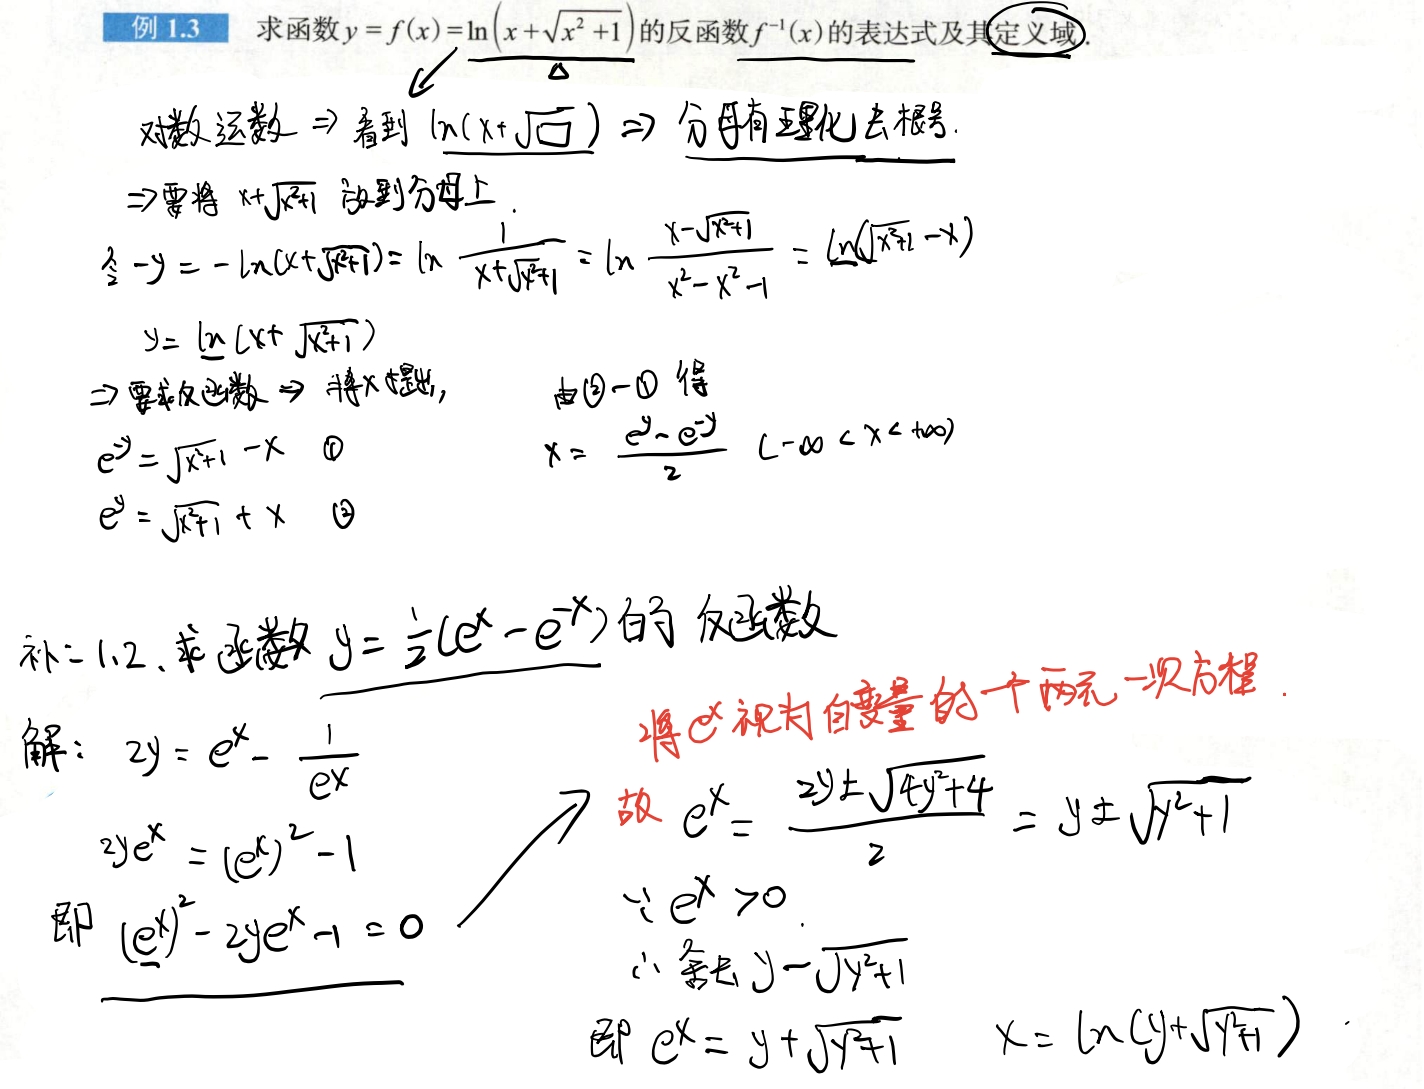 例 1.3 求函数 y = f(x) = ln(x + √(x² + 1)) 的反函数 f⁻¹(x) 的表达式及其定义域.
对数运数 ⇒ 看到 ln(x+√□) ⇒ 分母有理化去根号.
⇒ 要将 x+√(x²+1) 放到分母上.
令 -y = -ln(x+√(x²+1)) = ln 1/(x+√(x²+1)) = ln (x-√(x²+1))/(x²-x²-1) = ln(√(x²+1) - x)
y = ln(x+√(x²+1))
⇒ 要求反函数 ⇒ 将x提出,
e^-y = √(x²+1) - x ①
e^y = √(x²+1) + x ②
由②-① 得
x = (e^y - e^-y)/2 (-∞ < x < +∞)
补: 1.2、求函数 y = ½(e^x - e^-x) 的反函数
解: 2y = e^x - 1/e^x
2ye^x = (e^x)² - 1
即 (e^x)² - 2ye^x - 1 = 0
将e^x视为自变量的一个两元一次方程.
故 e^x = (2y ± √(4y²+4))/2 = y ± √(y²+1)
∵ e^x > 0.
∴ 舍去 y - √(y²+1)
即 e^x = y + √(y²+1) x = ln(y+√(y²+1)).